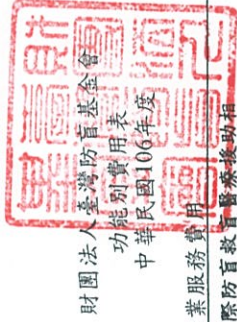 財團法人臺灣防盲基金會
功能別費用表
中華民國106年度
業服務費用
際防盲救盲醫療援助相